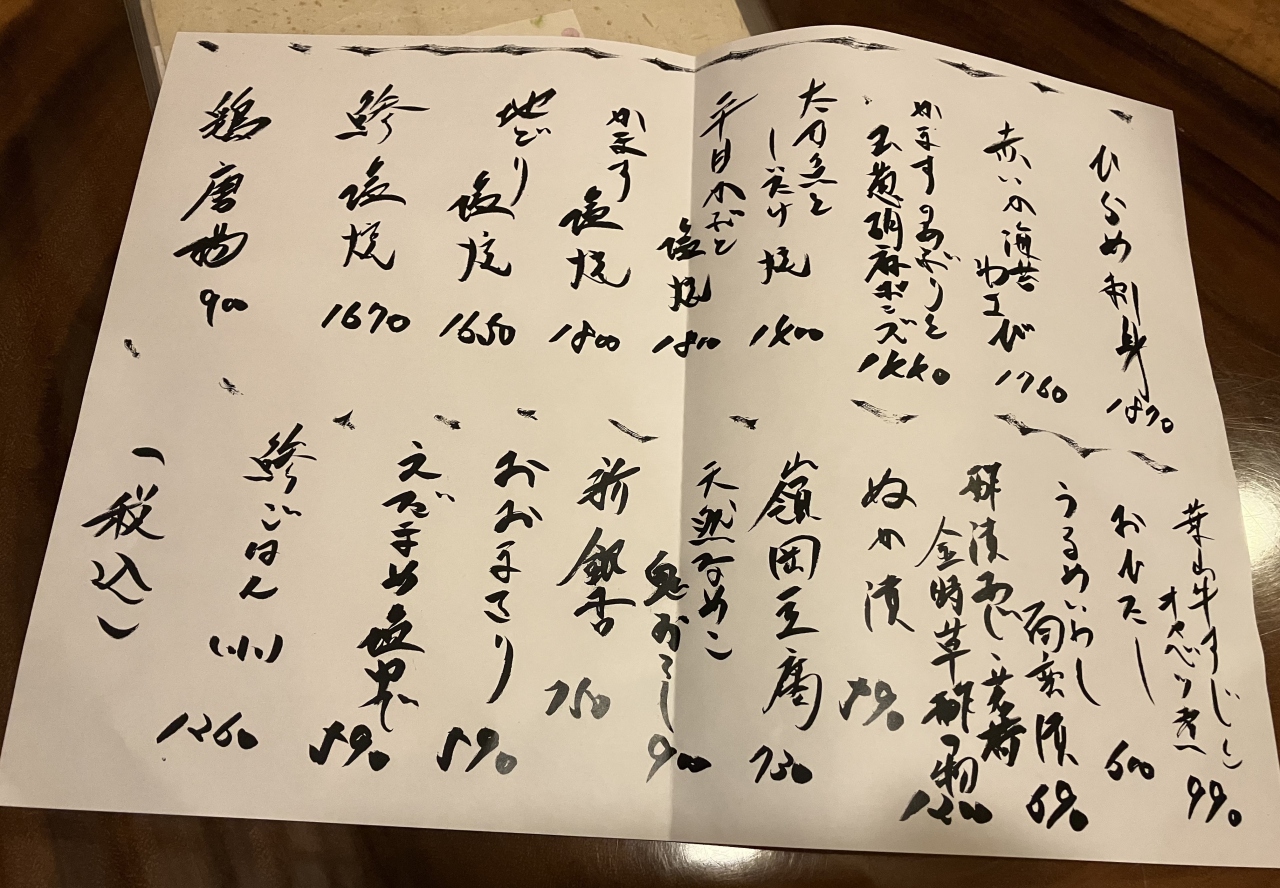 ひらめ刺身
1870
赤いか海苔
わさび
1760
かますのあぶりと
玉葱胡麻ポンズ
1440
太刀魚と
しいたけ焼
1400
平日かぶと
塩焼
1800
かます
塩焼
1800
地どり
塩焼
1650
鯵
塩焼
1670
鶏唐揚
900
葉山牛すじと
キャベツ煮
990
おひたし
600
うるめいわし
南蛮漬
690
酢漬あじ 茗荷
金時草酢の物
1200
ぬか漬
590
嶺岡豆腐
730
天然なめこ
鬼おろし
900
新銀杏
750
おおまさり
590
えだまめ塩
590
鯵ごはん(小)
1260
(税込)